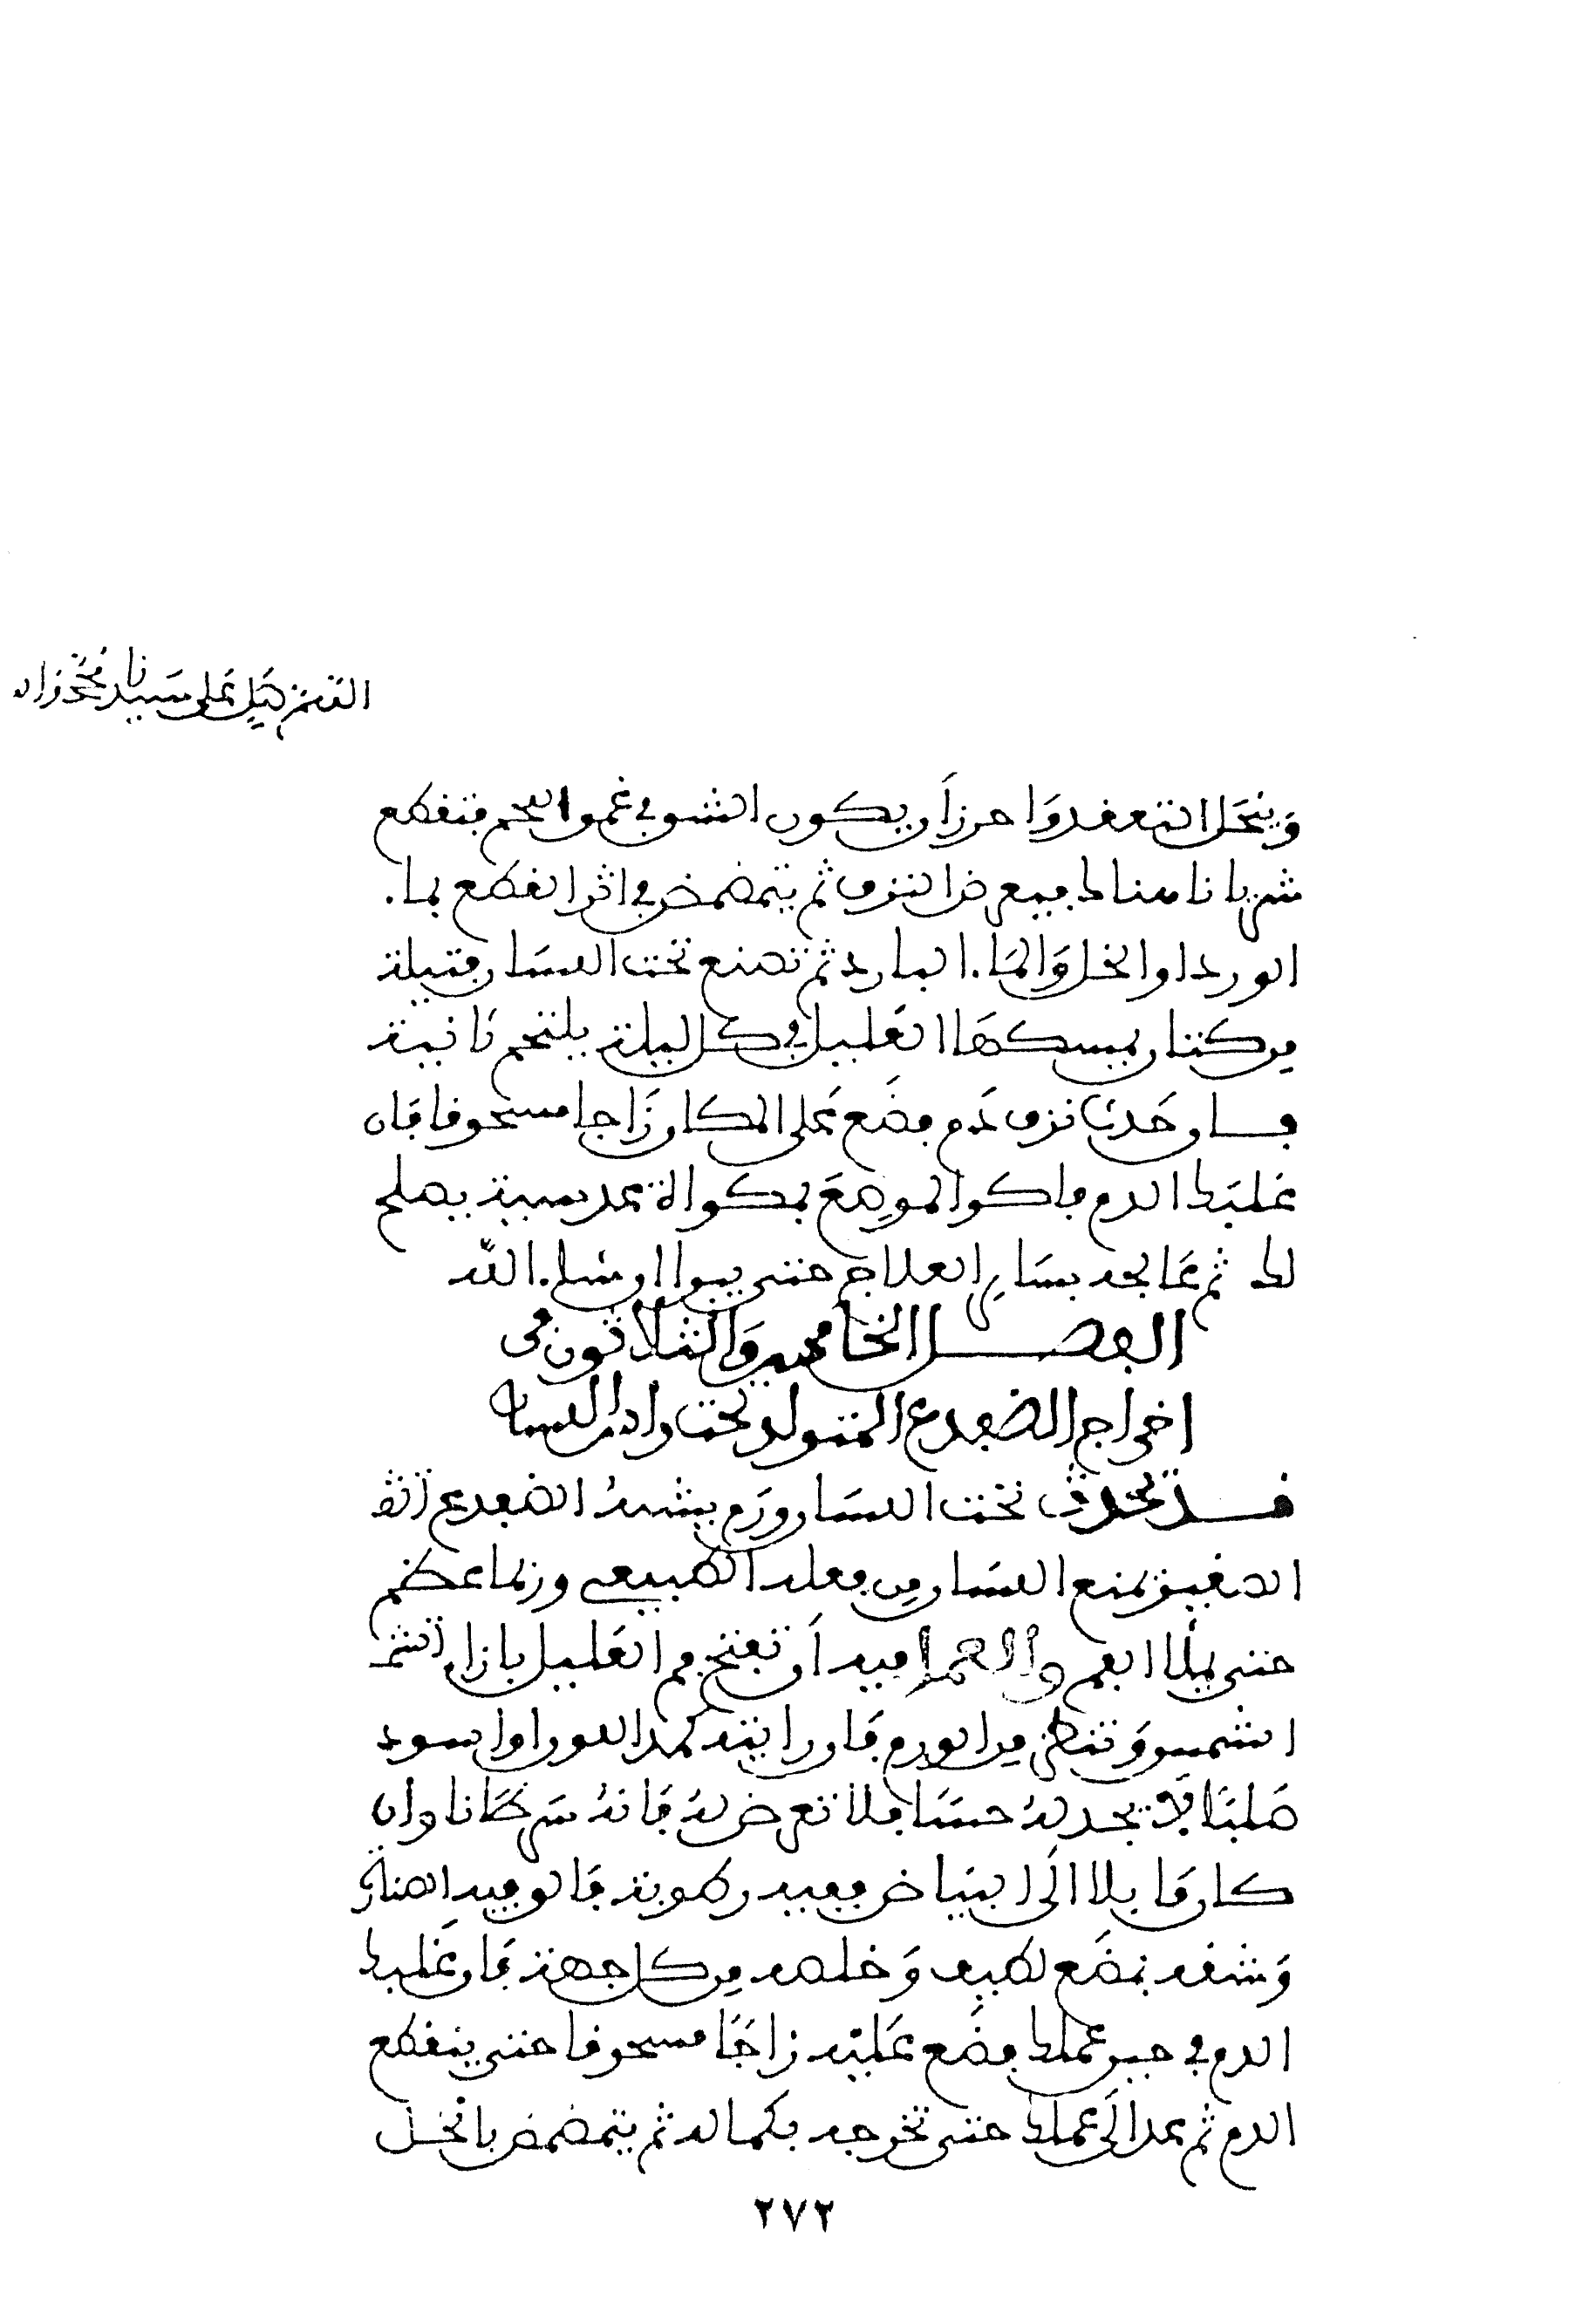 اللهم صل على سيدنا محمد واله
وينحل التعقد واحذر أن يكون الشق في عمق اللحم فتقطع
شريانا هنالك فيعرض النزف ثم يتمضمض في اثر القطع بماء
الورد او الخل والماء البارد ثم تضع تحت اللسان فتيلة
من كتان يمسكها العليل في كل ليلة ليلا يلتحم ثانية
فان حدث نزف دم فضع على المكان زاجا مسحوقا فان
غلبك الدم فاكو الموضع بمكواة عدسية يصلح
لذلك ثم عالجه بسائر العلاج حتى يبرا ان شاء الله
الفصل الخامس والثلاثون في
اخراج الضفدع المتولد تحت اللسان
قد يحدث تحت اللسان ورم يشبه الضفدع
الصغير يمنع اللسان من فعله الطبيعي وربما عظم
حتى يملا الفم والعمل فيه أن تفتح فم العليل بازاء
الشمس وتنظر من الورم فان رايته كمد اللون او اسود
صلبا لا يجد له حسا فلا تعرض له فانه سرطان وان
كان مايلا الى البياض فيه رطوبة فالق فيه الصنارة
وشقه بمبضع لطيف وخلصه من كل جهة فان غلبك
الدم في حين عملك فضع عليه زاجا مسحوقا حتى ينقطع
الدم ثم عد الى عملك حتى تخرجه بكماله ثم يتمضمض بالخل
٢٧٢